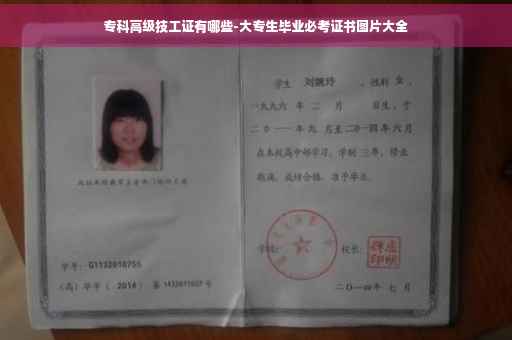 专科高级技工证有哪些-大专生毕业必考证书图片大全
学生 刘婉玲 ，性别 女 ，
一九九六 年 二 月 日生，于
二〇一一 年 九 月至 二〇一四 年 六 月
在本校高中部学习，学制 三 年，修业
期满，成绩合格，准予毕业。
学校：
校长：
学号： G1132010755
(高) 毕字 ( 2014 ) 第 1432011607 号
二〇一四年 七 月